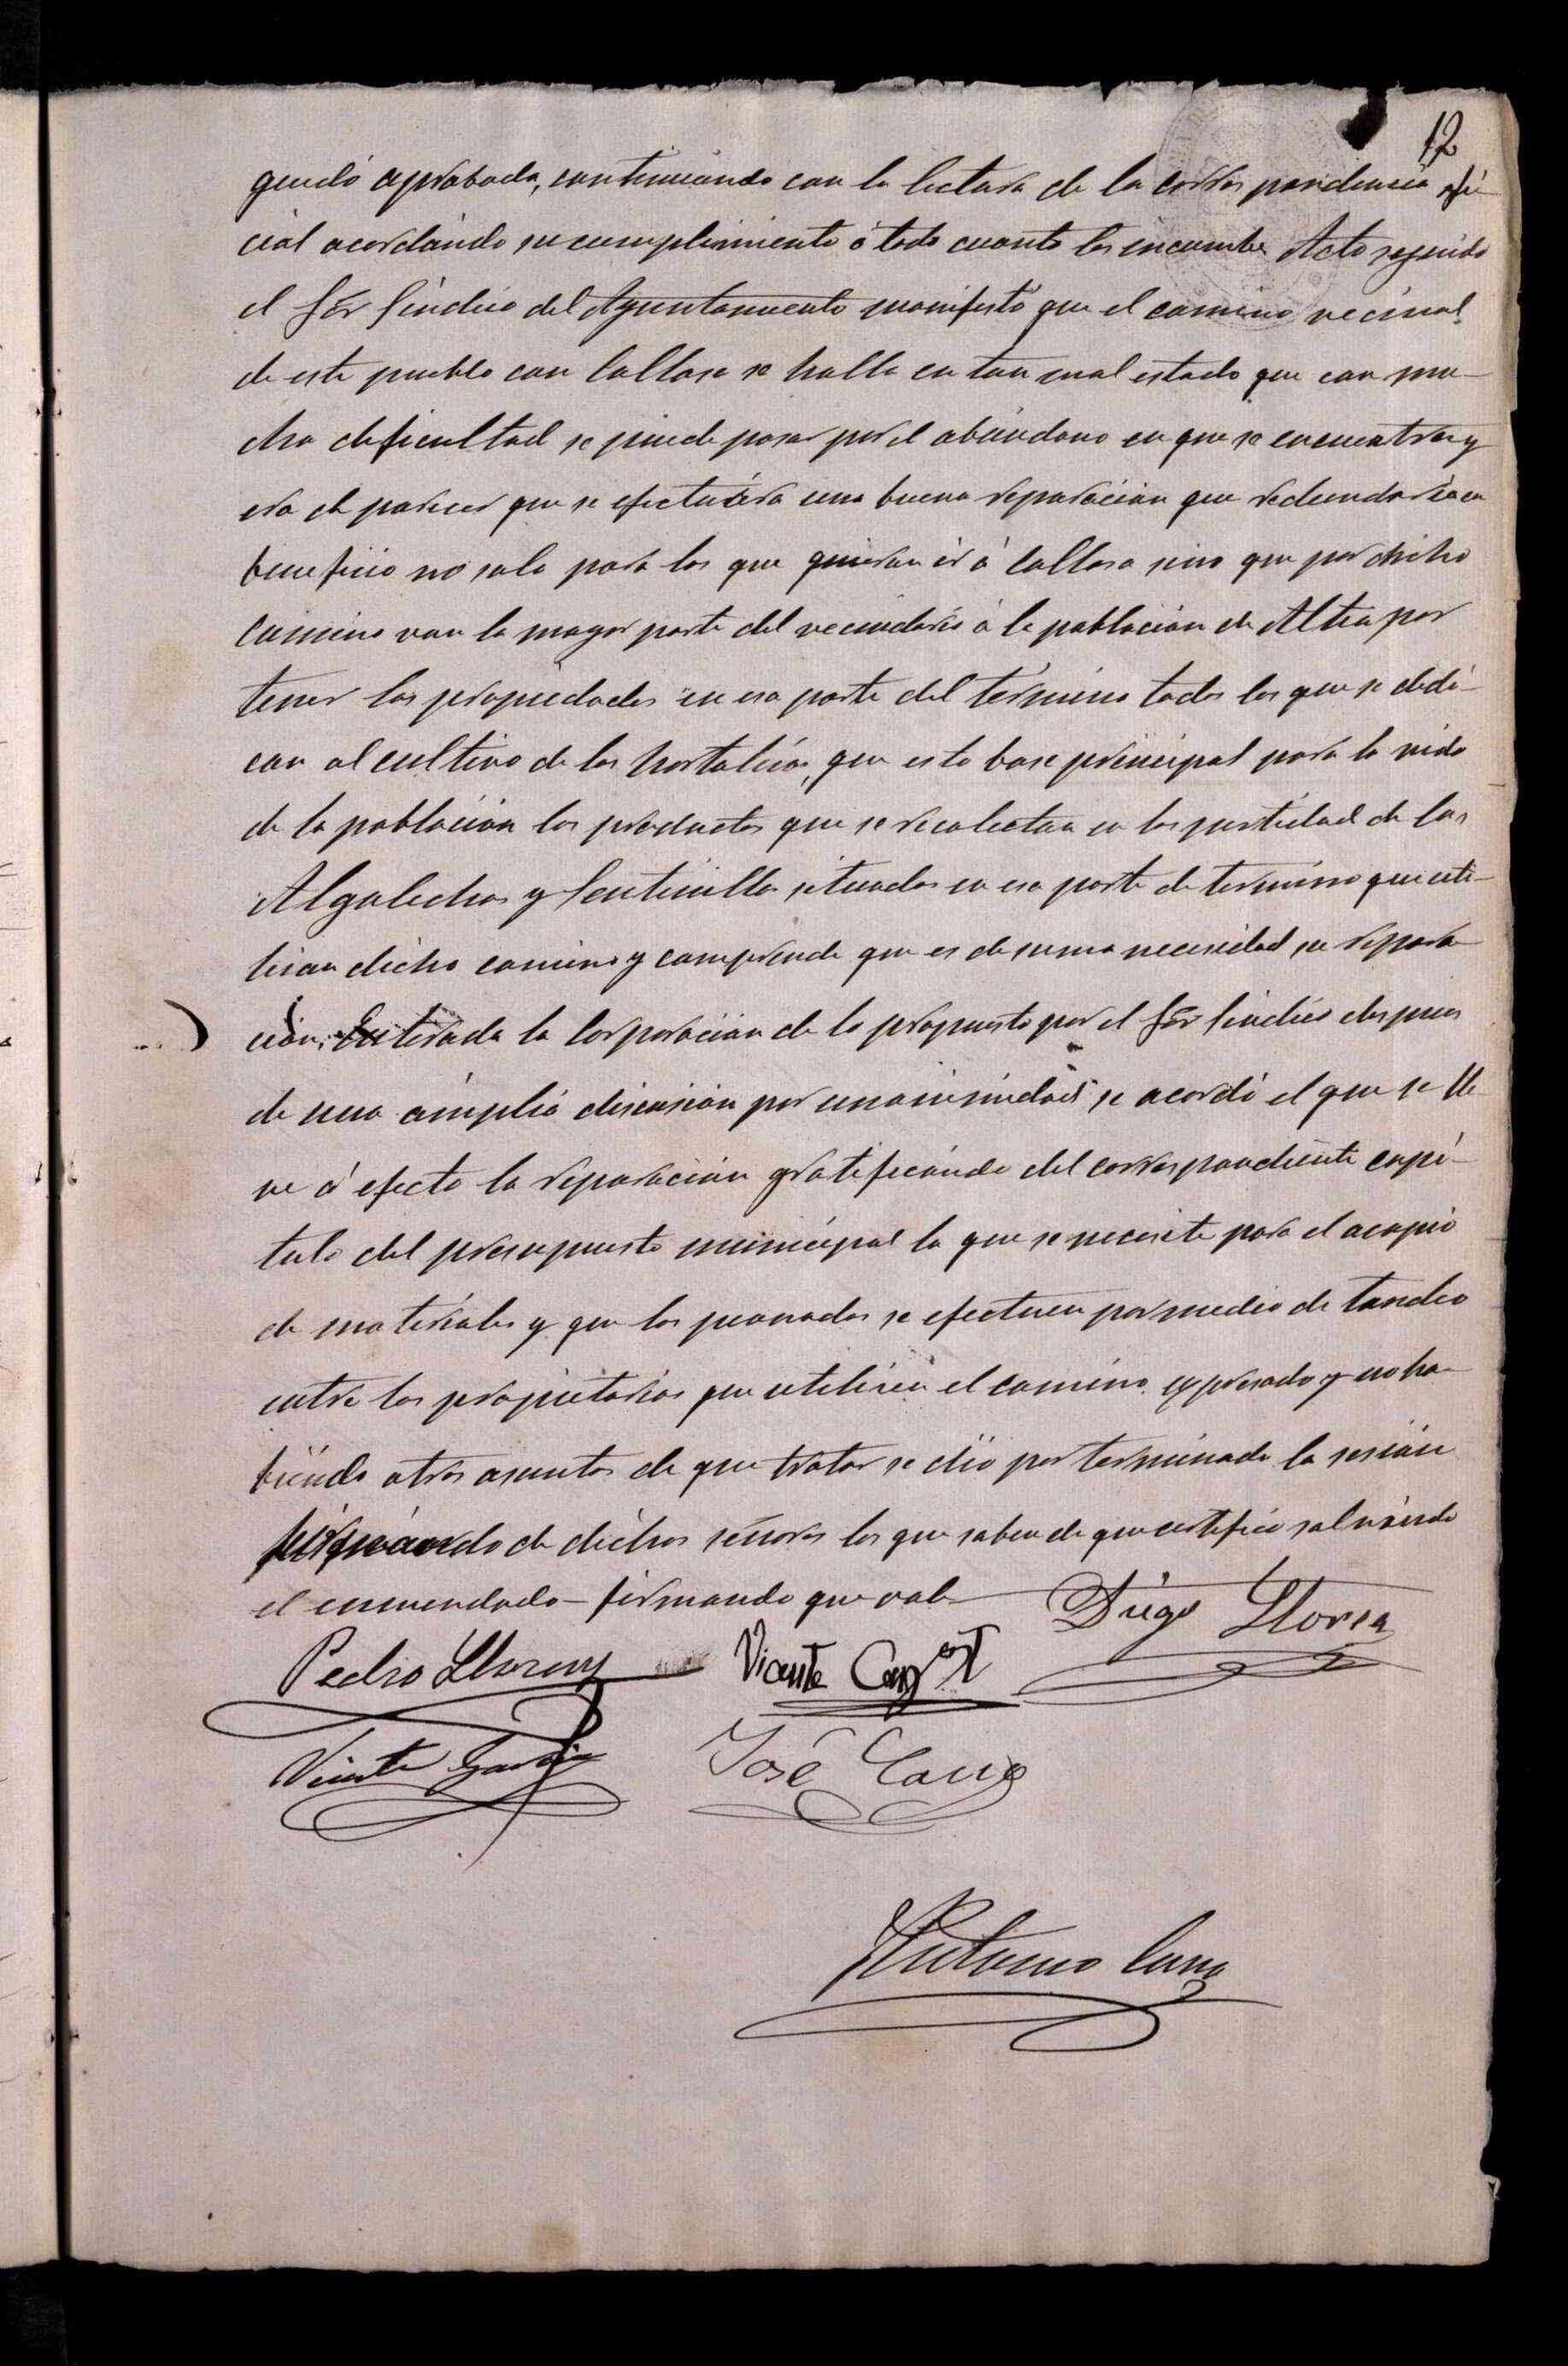 12
quedó aprobada, continuando con la lectura de la correspondencia ofi-
cial acordándo su cumplimiento á todo cuanto les incumbe. Acto seguido
el Sór Síndico del Ayuntamiento manifestó que el camino vecinal
de este pueblo con Callosa se halla en tan mal estado que con mu-
cha dificultad se puede pasar por el abandono en que se encuentra y
era de parecer que se efectuára una buena reparación que redundaría en
beneficio no solo para los que quieran ir á Callosa sino que por dicho
camino van la mayor parte del vecindario á la población de Altea por
tener las propiedades en esa parte del término todos los que se dedi-
can al cultivo de las hortalizas, que es la base principal para la vida
de la población los productos que se recolectan en las partidad de las
Algulechas y Sentinilla situadas en esa parte de término que uti-
lizan dicho camino y comprende que es de suma necesidad su repara-
ción. Enterada la Corporación de lo propuesto por el Sór Síndico despues
de una ámplia discusión por unanimidad se acordó el que se lle-
ve á efecto la reparación gratificándo del correspondiente capí-
tulo del presupuesto municipal lo que se necesite para el acopio
de materiales y que las peonadas se efectuen por medio de tandeo
entre los propietarios que utilicen el camino expresado y no ha-
biéndo otros asuntos de que tratar se dió por terminada la sesión
firmando de dichos señores los que saben de que certifico salvándo
el enmendado - firmando que vale
Diego Llorca
Pedro Llorens
Vicente
Vicente
José Cano
Antonio Cano